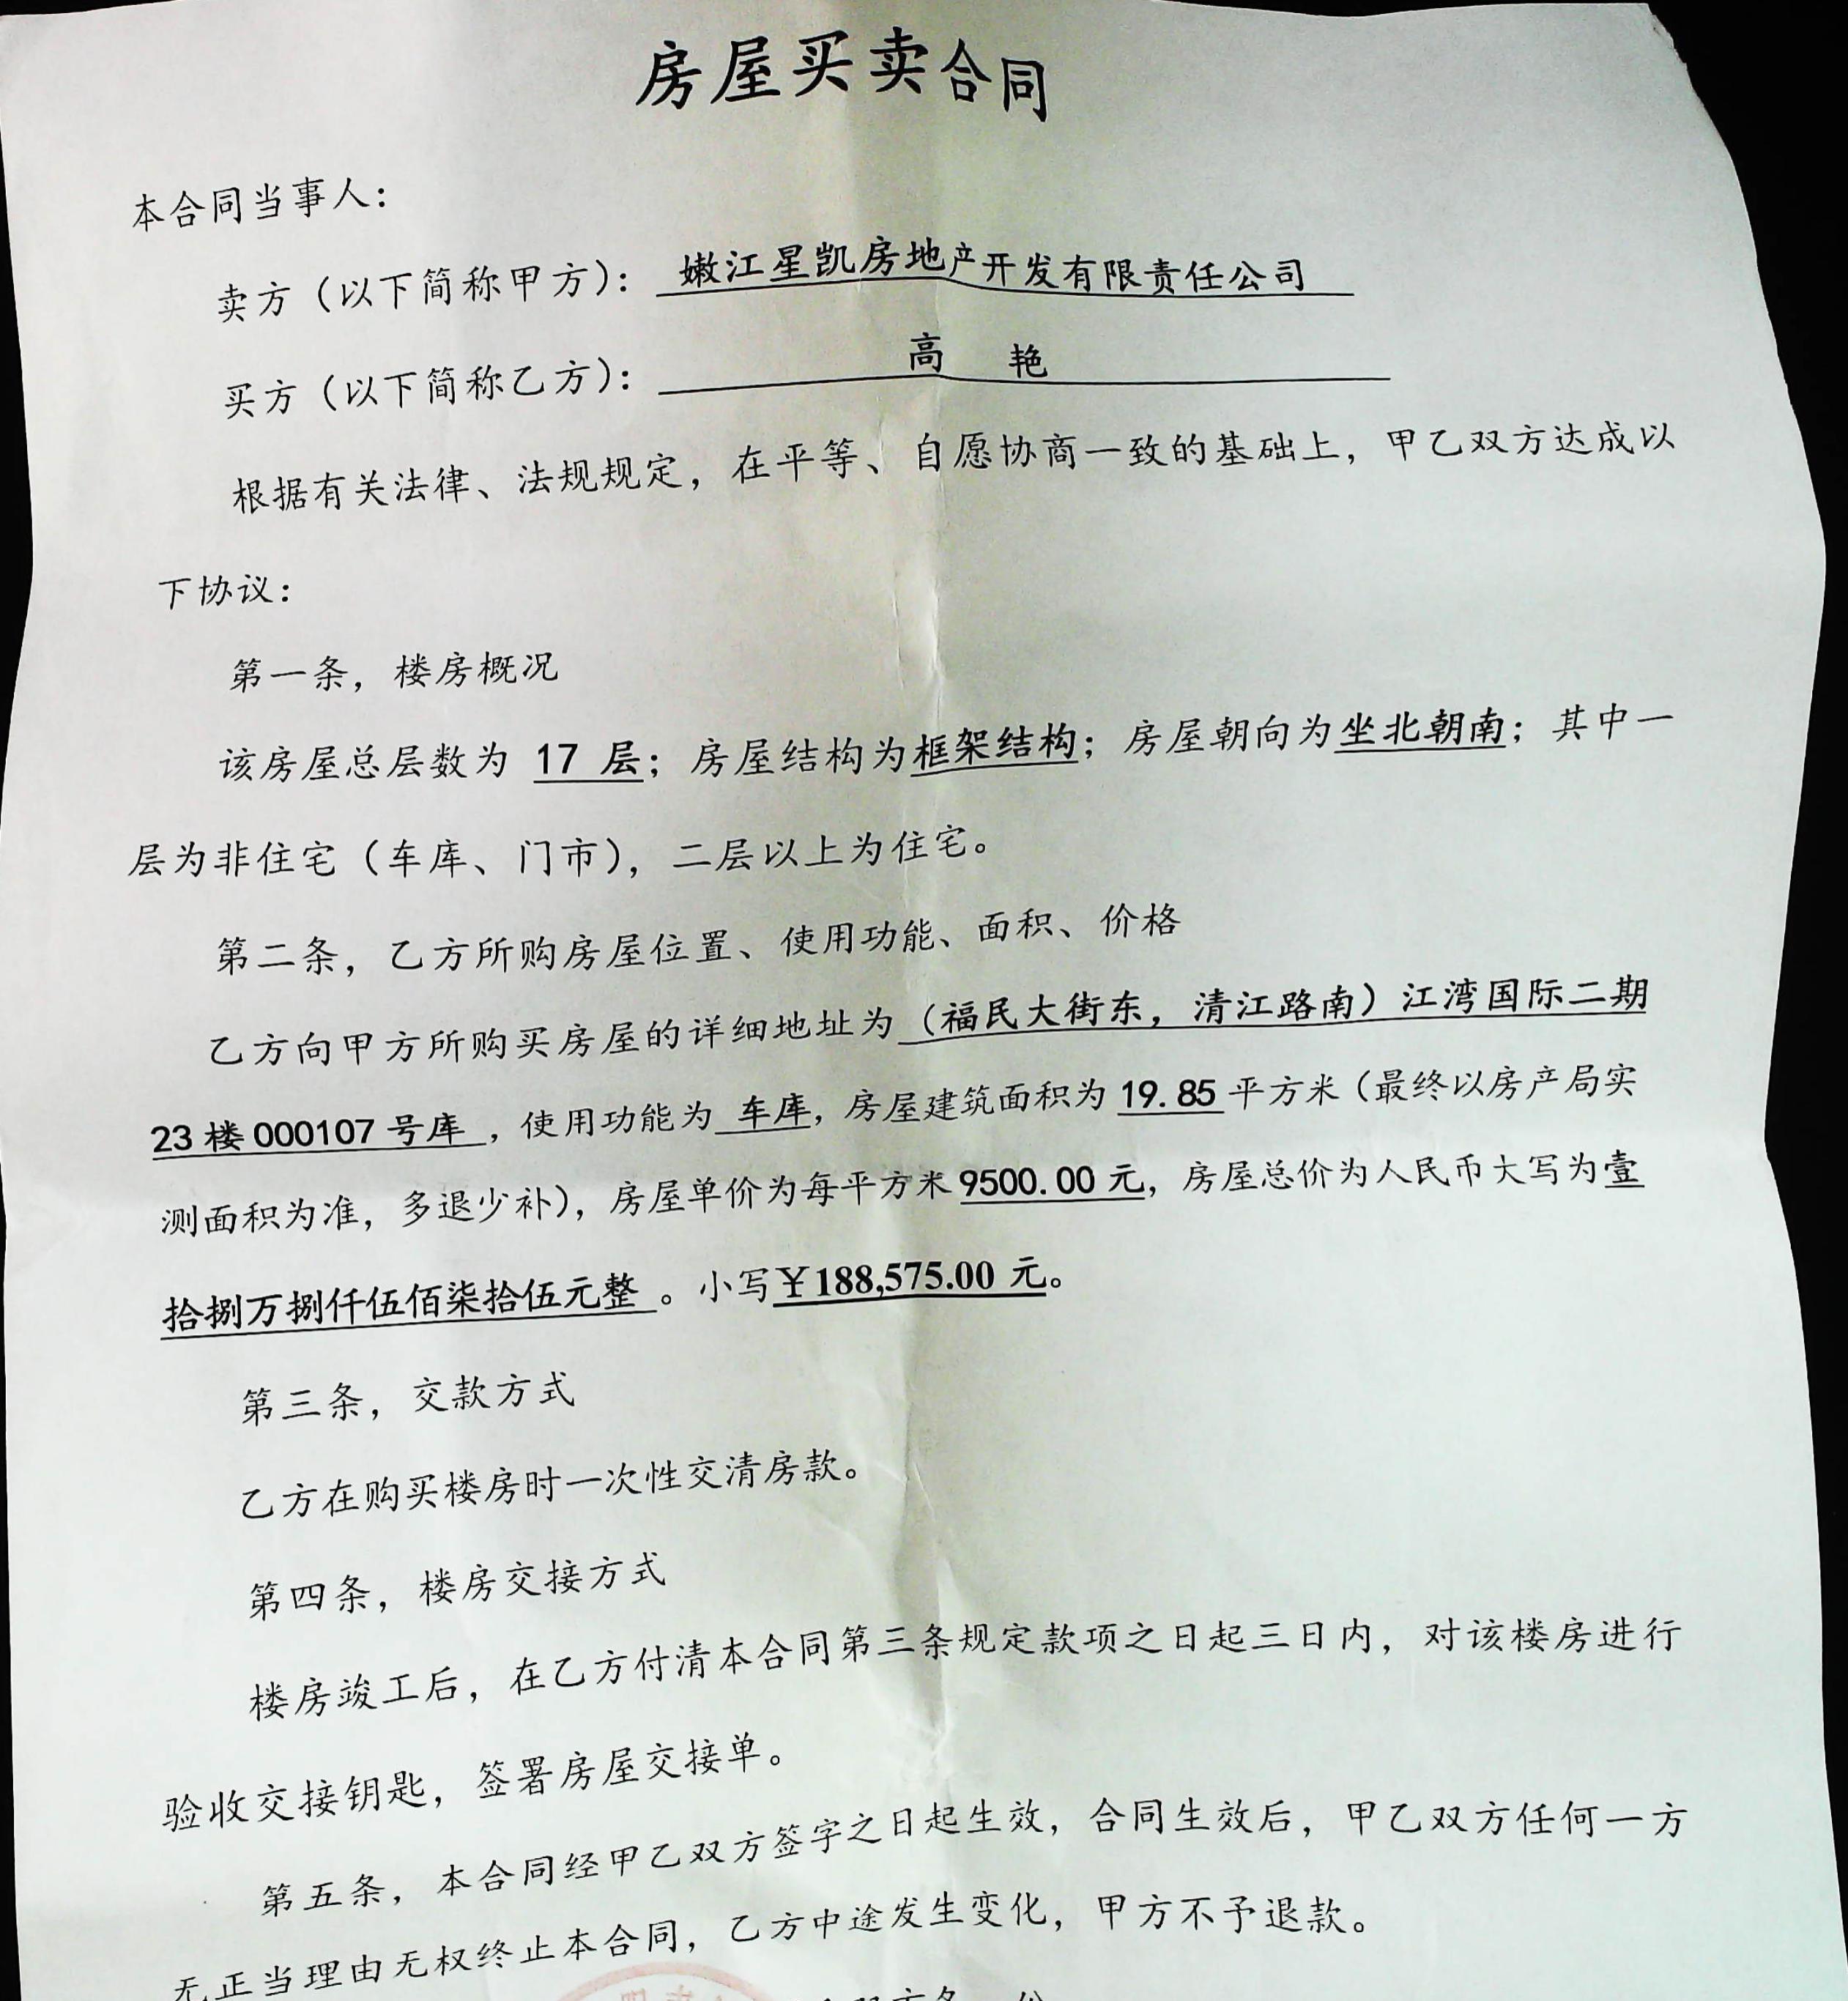 房屋买卖合同
本合同当事人：
卖方（以下简称甲方）：嫩江星凯房地产开发有限责任公司
买方（以下简称乙方）：高 艳
根据有关法律、法规规定，在平等、自愿协商一致的基础上，甲乙双方达成以
下协议：
第一条，楼房概况
该房屋总层数为 17 层；房屋结构为框架结构；房屋朝向为坐北朝南；其中一
层为非住宅（车库、门市），二层以上为住宅。
第二条，乙方所购房屋位置、使用功能、面积、价格
乙方向甲方所购买房屋的详细地址为（福民大街东，清江路南）江湾国际二期
23 楼 000107 号库 ，使用功能为 车库，房屋建筑面积为 19.85 平方米（最终以房产局实
测面积为准，多退少补），房屋单价为每平方米 9500.00 元，房屋总价为人民币大写为壹
拾捌万捌仟伍佰柒拾伍元整 。小写￥188,575.00 元。
第三条，交款方式
乙方在购买楼房时一次性交清房款。
第四条，楼房交接方式
楼房竣工后，在乙方付清本合同第三条规定款项之日起三日内，对该楼房进行
验收交接钥匙，签署房屋交接单。
第五条，本合同经甲乙双方签字之日起生效，合同生效后，甲乙双方任何一方
无正当理由无权终止本合同，乙方中途发生变化，甲方不予退款。